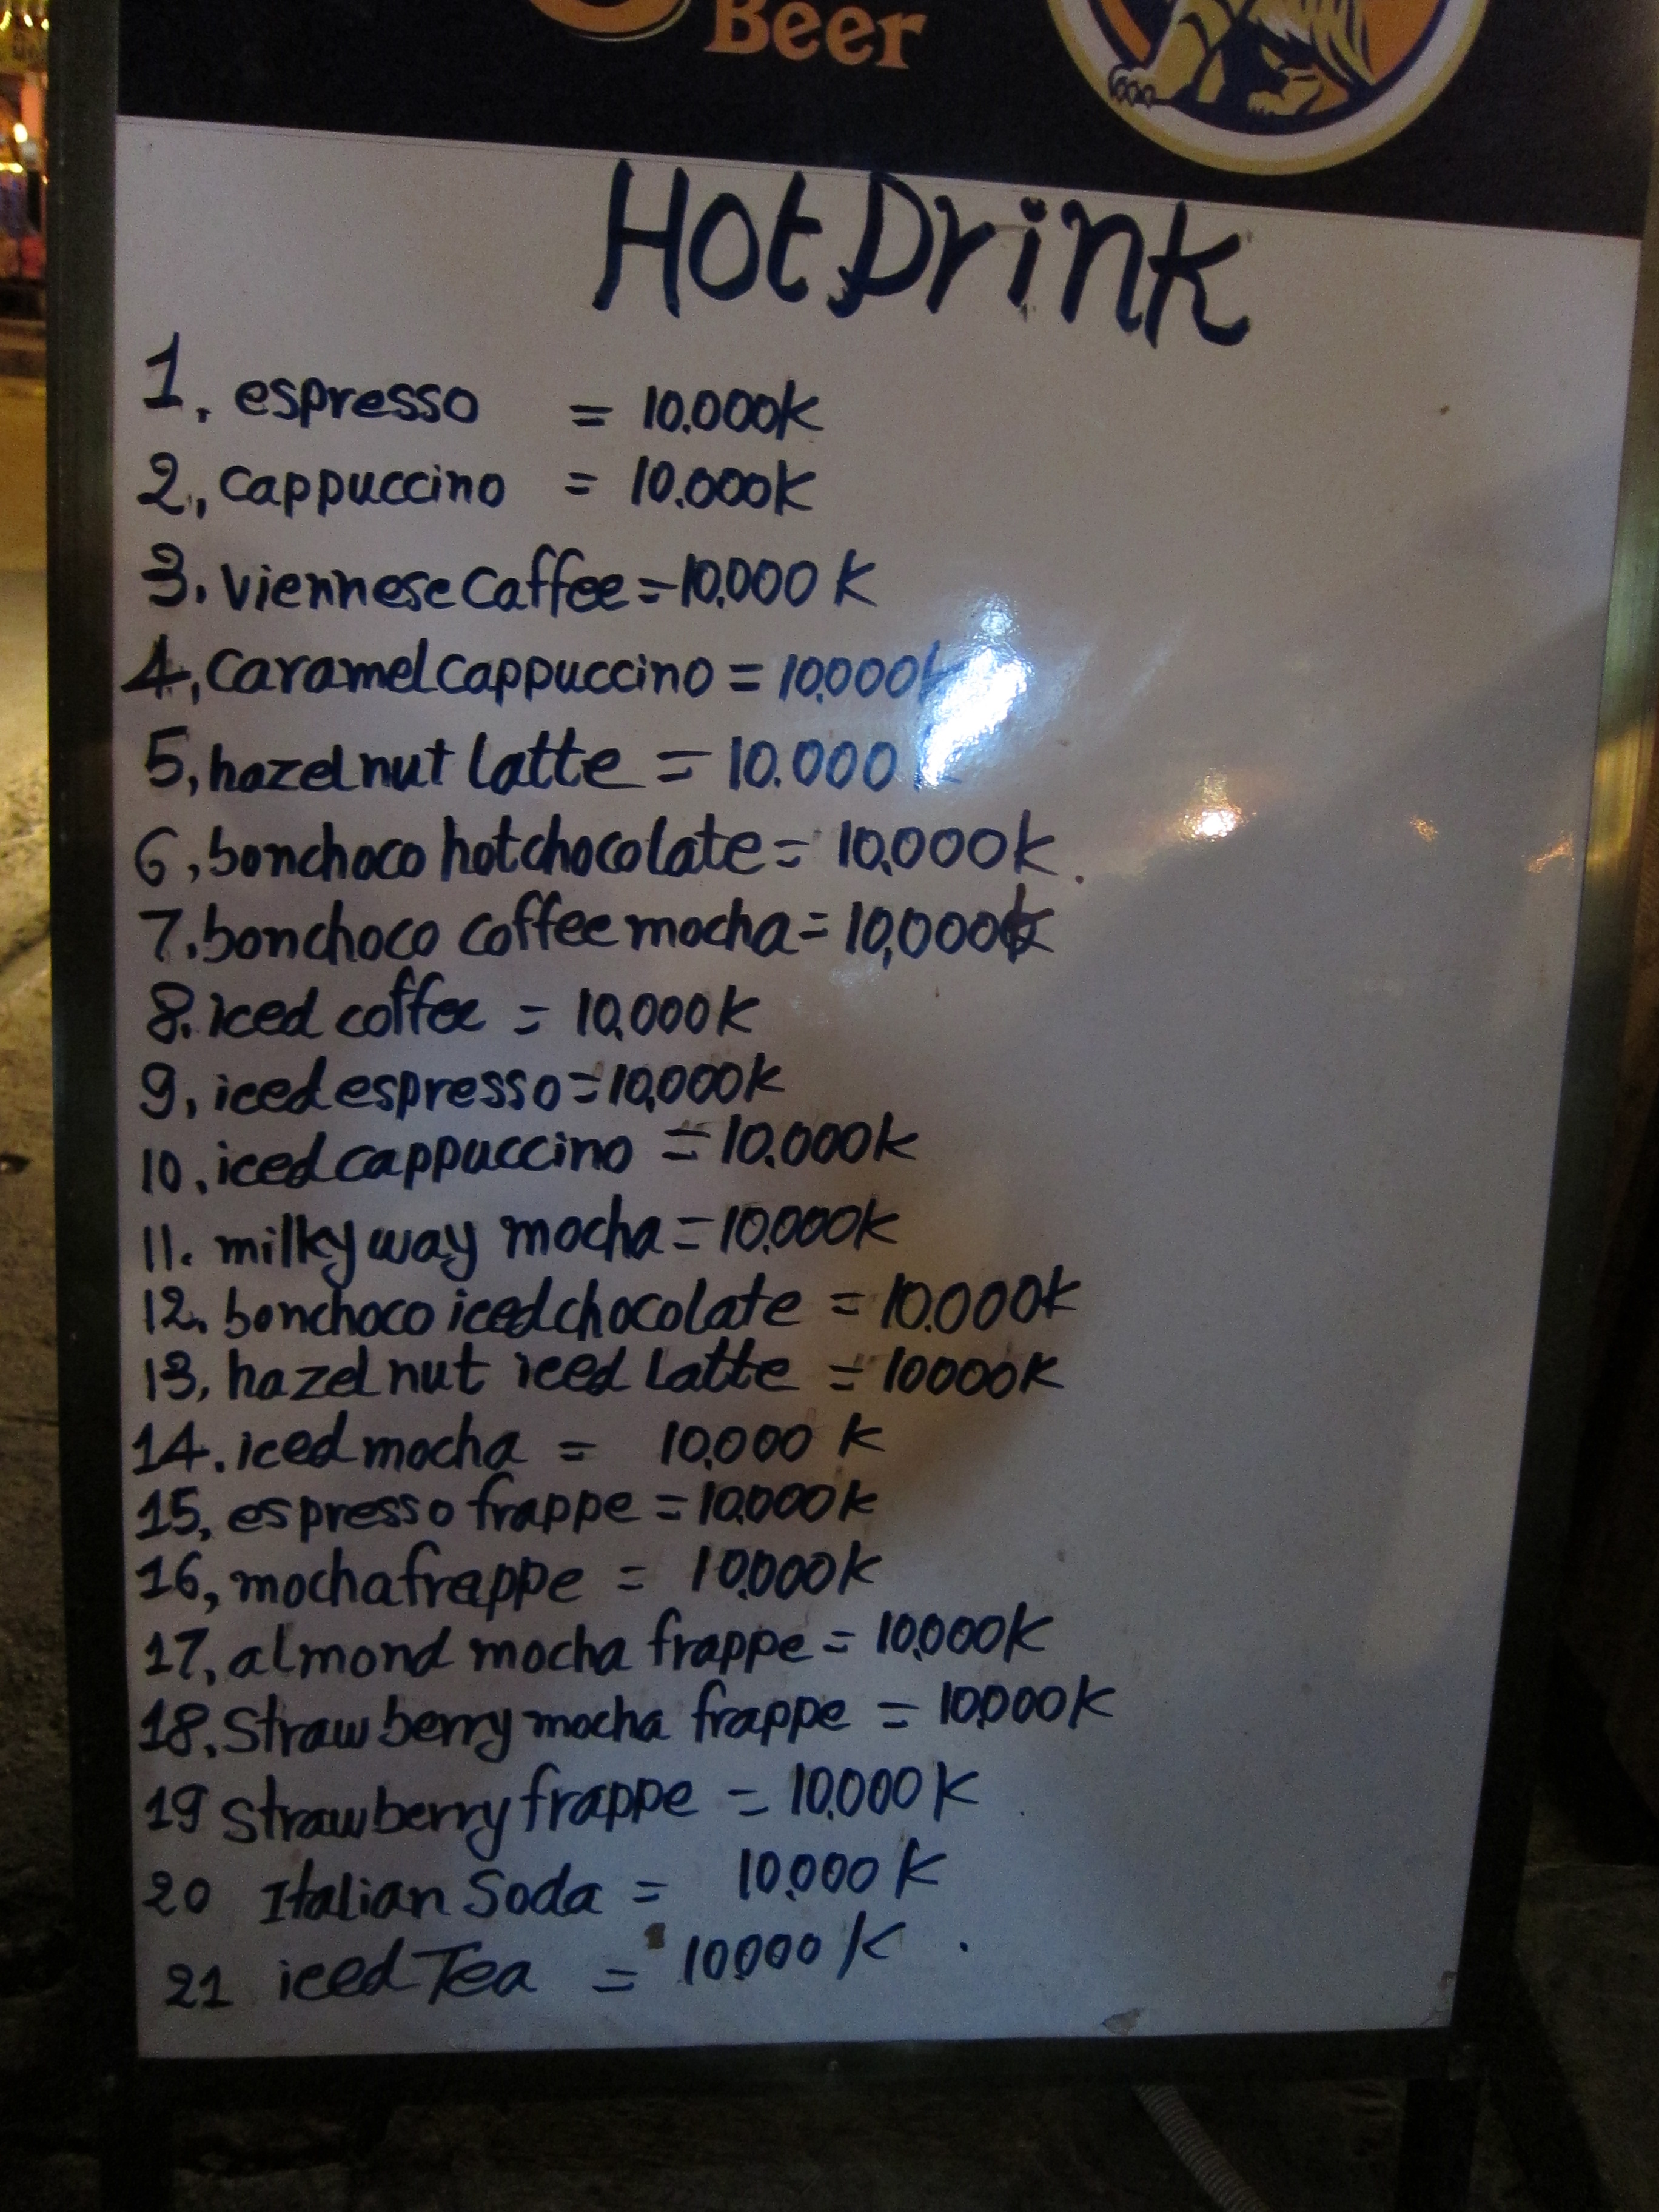 Beer
Hot Drink
1, espresso = 10.000K
2, cappuccino = 10.000K
3. Viennese Caffee = 10,000 K
4, Caramel cappuccino = 10,000K
5, hazel nut latte = 10.000 K
6, bonchoco hot chocolate = 10,000K
7. bonchoco coffee mocha = 10,000K
8. iced coffee = 10,000K
9, iced espresso = 10,000K
10, iced cappuccino = 10.000K
11. milky way mocha = 10,000K
12. bonchoco iced chocolate = 10.000K
13, hazel nut iced Latte = 10000K
14. iced mocha = 10,000 K
15, espresso frappe = 10,000K
16, mocha frappe = 10,000K
17, almond mocha frappe = 10,000K
18. Strawberry mocha frappe = 10,000K
19 Strawberry frappe = 10,000K
20 Italian Soda = 10,000 K
21 iced Tea = 10,000 K